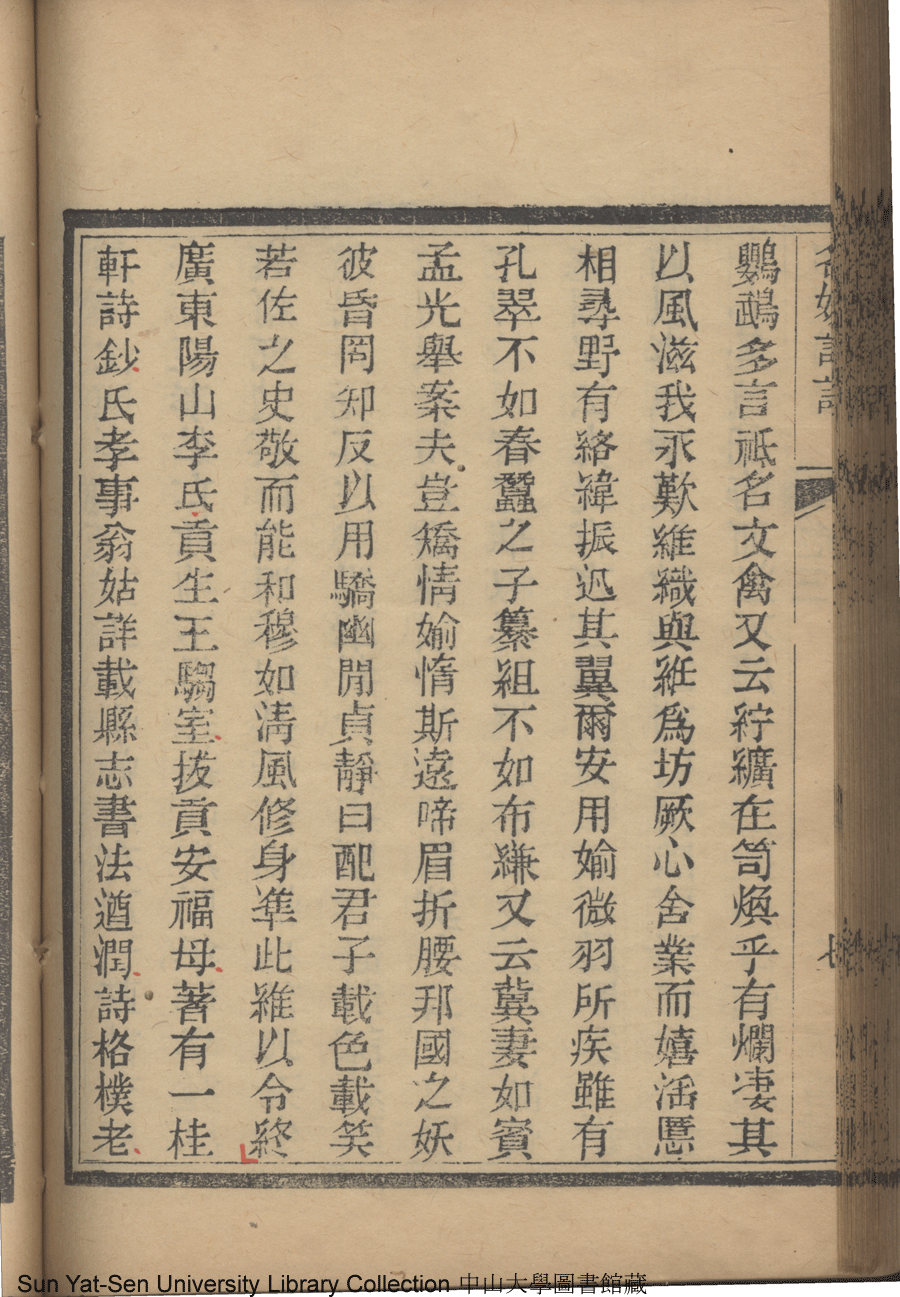 名媛詩話
七
鸚鵡多言祗名文禽又云紵纊在笥煥乎有爛凄其
以風滋我永歎維織與紝爲坊厥心舍業而嬉滛慝
相尋野有絡緯振迅其翼爾安用媮微羽所疾雖有
孔翠不如春蠶之子纂組不如布縑又云冀妻如賓
孟光舉案夫豈矯情媮惰斯遠啼眉折腰邦國之妖
彼昏罔知反以用驕幽閒貞靜曰配君子載色載笑
若佐之史敬而能和穆如清風修身準此維以令終
廣東陽山李氏貢生王騶室拔貢安福母著有一桂
軒詩鈔氏孝事翁姑詳載縣志書法遒潤詩格樸老
Sun Yat-Sen University Library Collection 中山大學圖書館藏